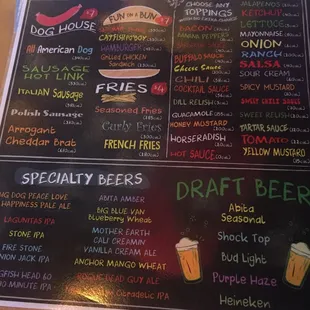 DOG HOUSE $7
All American Dog
SAUSAGE
HOT LINK
ITALIAN SAUSAGE
Polish Sausage
Arrogant
Cheddar Brat
FUN ON A BUN
CATFISH PO BOY
HAMBURGER
Grilled Chicken
Sandwich
FRIES $4
Seasoned Fries
Curly Fries
FRENCH FRIES
CHOOSE ANY
TOPPINGS
BUFFALO SAUCE
Cheese Sauce
CHILI
COCKTAIL SAUCE
DILL RELISH
GUACAMOLE
HONEY MUSTARD
HORSERADISH
HOT SAUCE
JALAPENOS
KETCHUP
LETTUCE
MAYONNAISE
ONION
RANCH
SALSA
SOUR CREAM
SPICY MUSTARD
SWEET CHILI SAUCE
SWEET RELISH
TARTAR SAUCE
TOMATO
YELLOW MUSTARD
SPECIALTY BEERS
DOG PEACE LOVE
HAPPINESS PALE ALE
LAGUNITAS IPA
STONE IPA
FIRE STONE
UNION JACK IPA
HEAD 60
MINUTE IPA
ABITA AMBER
BIG BLUE VAN
Blueberry Wheat
MOTHER EARTH
CALI CREAMIN
VANILLA CREAM ALE
ANCHOR MANGO WHEAT
ROGUE DEAD GUY ALE
Citradelic IPA
DRAFT BEER
Abita
Seasonal
Shock Top
Bud Light
Purple Haze
Heineken